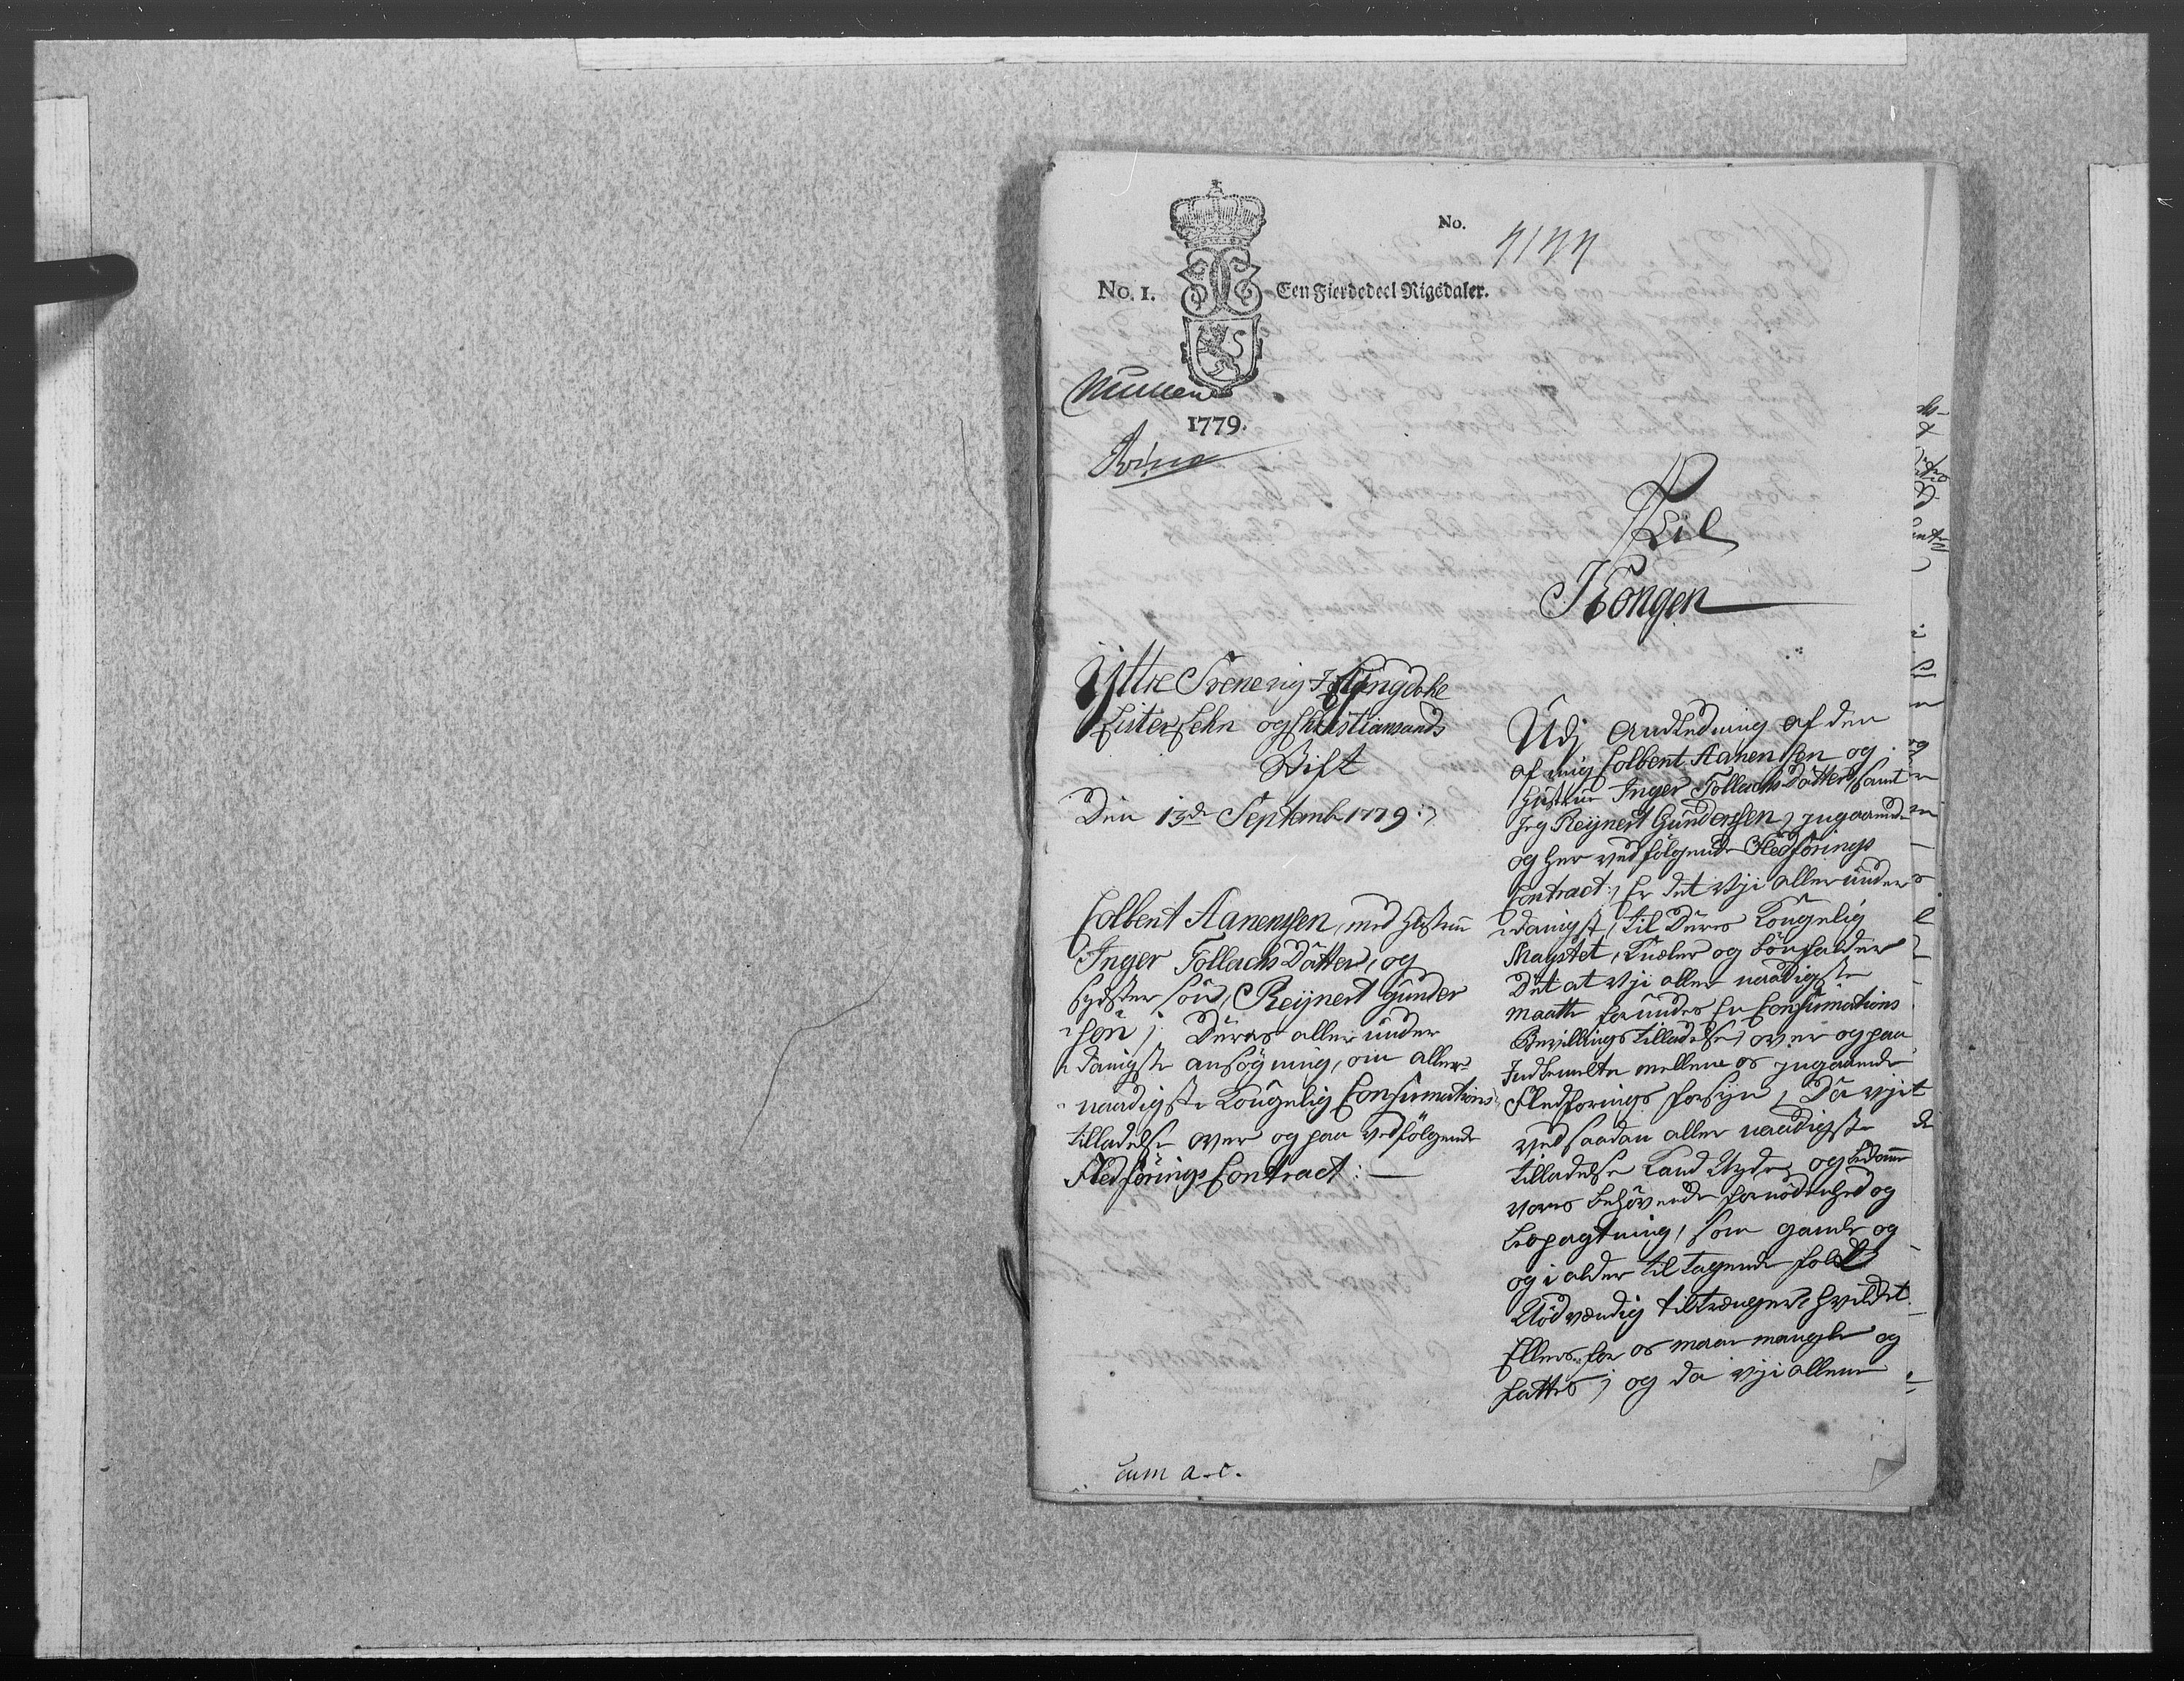 No.
No. 1.
Een Fierdedeel Rigsdaler.
1779.
Til
Kongen
Yttre Svenevig I Spangdahl
Lister Lehn og Christiansands
Stift
Den 13de Septembr 1779:
Colbent Aanensen, med Hustrue
Inger Tollachs Datter, og
Sydster Søn, Reijnert Gunder
søn; Deres allerunder
danigste ansøgning, om aller
naadigste Kongelig Confirmations
tilladelse over og paa vedfølgende
Fledførings Contract:
cum a. c.
Udj Andledning af den
af mig Colbent Aanensen og
Hustrue Inger Tollachs Datter, samt
Jeg Reijnert Gundersen, jngaaende
og her vedfølgende Fledførings
Contract; Er det vji allerunder
danigst, til Deres Kongelig
Mayestet, Knæler og bønfalder
Det at vji aller naadigste
maatte forundes En Confirmations
Bevillings tilladelse, over og paa
Indbemelte mellem os jngaaende
Fledførings forsyn, Da vji
ved saadan aller naadigste
tilladelse kand Nyde, og bekomme
vores behøvende fornødenhed og
opagtning, som gamle og
og i alder til tagende folck
Nødvendig tiltrænger, hvilcket
Ellers for os maae mangle og
fattes; og da vji allene